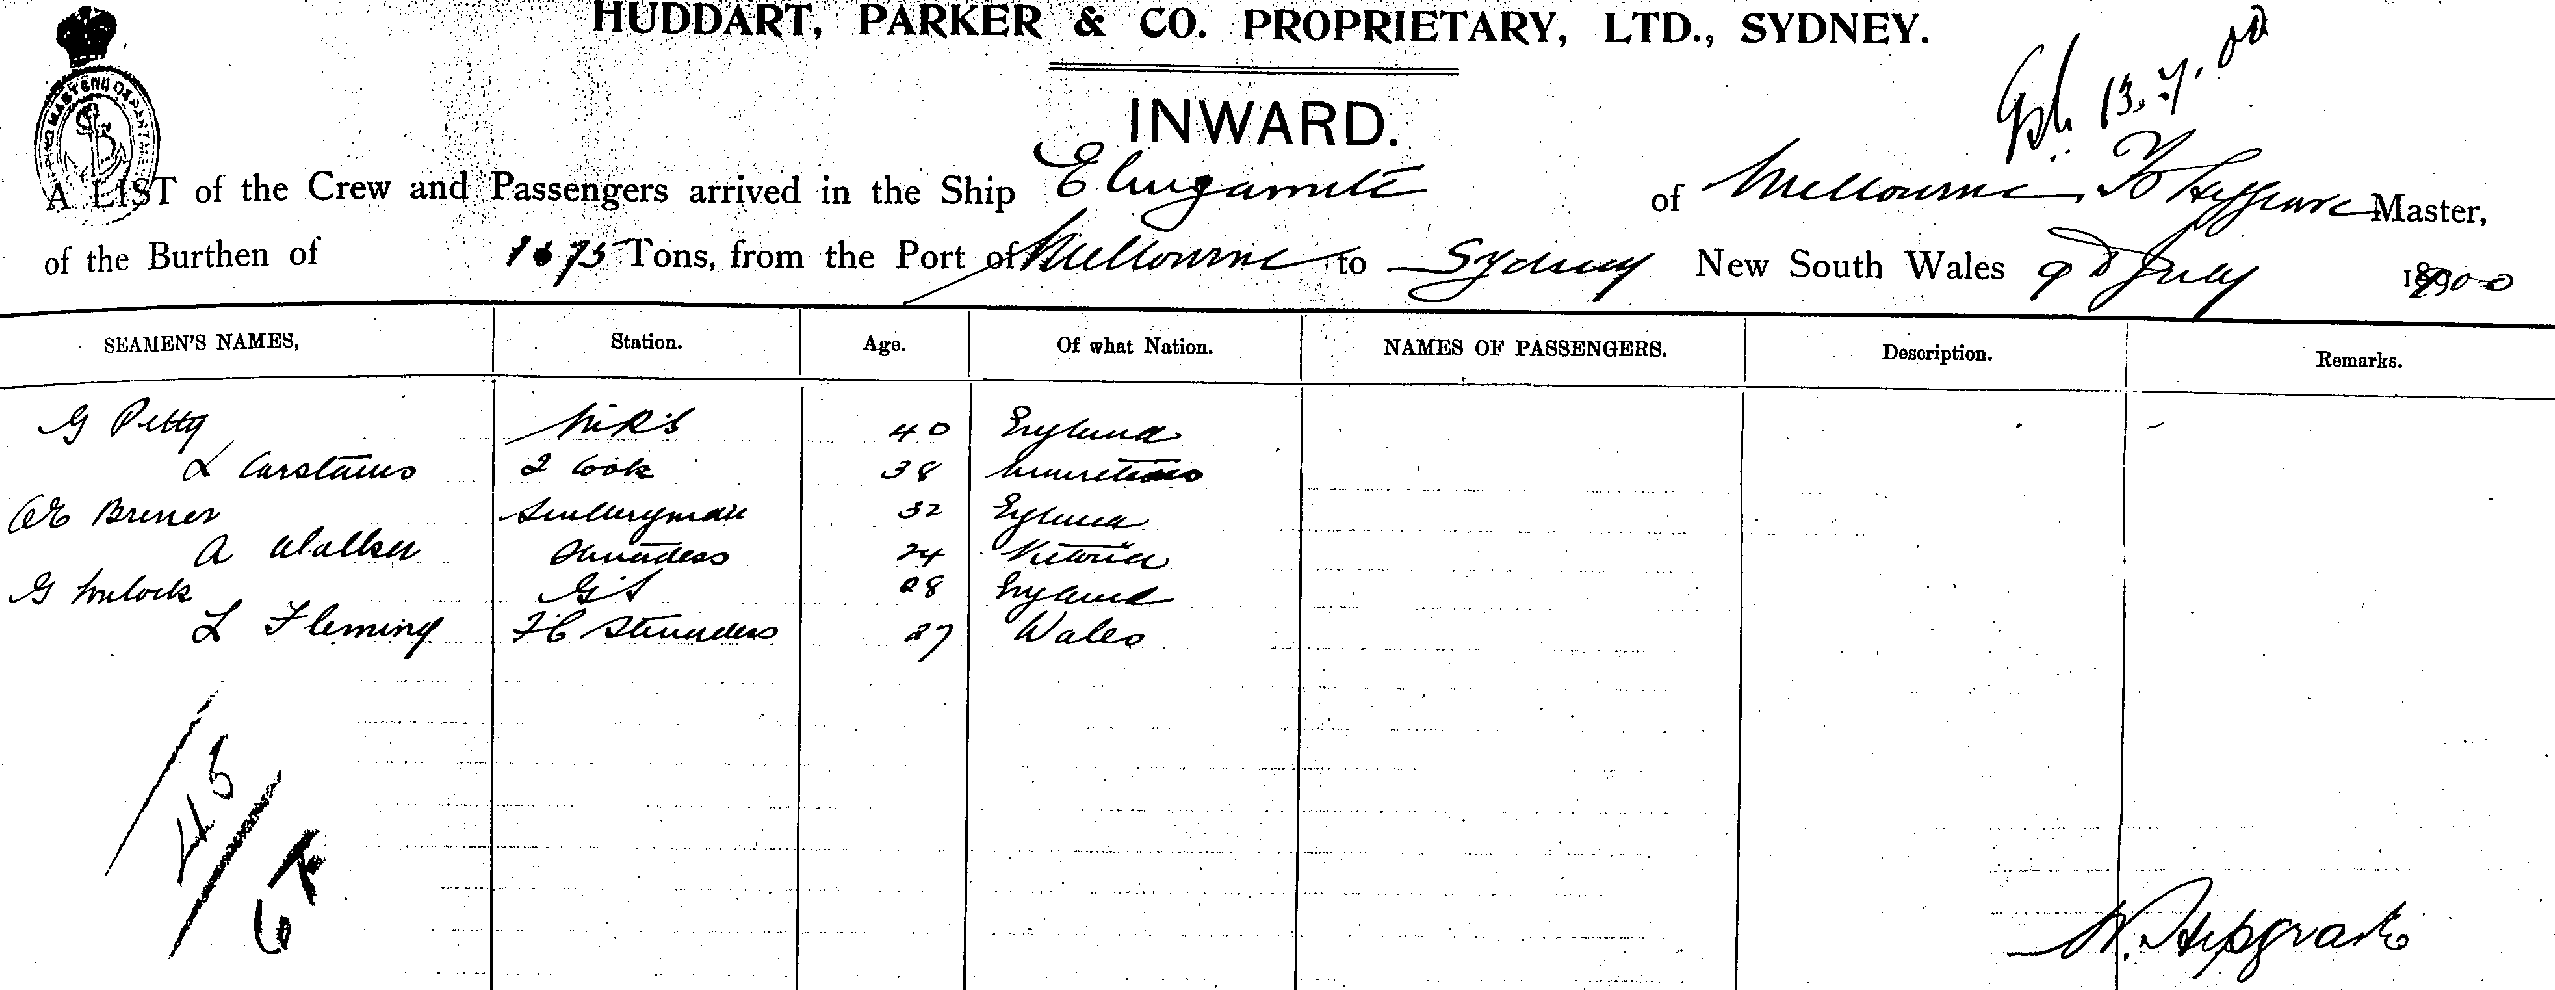 HUDDART, PARKER & CO. PROPRIETARY, LTD., SYDNEY.
13.7.00
INWARD.
A LIST of the Crew and Passengers arrived in the Ship Elingamite of Melbourne, Master,
of the Burthen of 1675 Tons, from the Port of Melbourne to Sydney New South Wales 9th July 1900
SEAMEN'S NAMES, Station. Age. Of what Nation. NAMES OF PASSENGERS. Description. Remarks.
G Petty 40 England
L Carstairs 2 Cook 38 Mauritius
Brener Sculleryman 32 England
A Walker Stewardess 24 Victoria
G GS 28 England
L Fleming Stewardess 27 Wales
45
W. Hepgrave